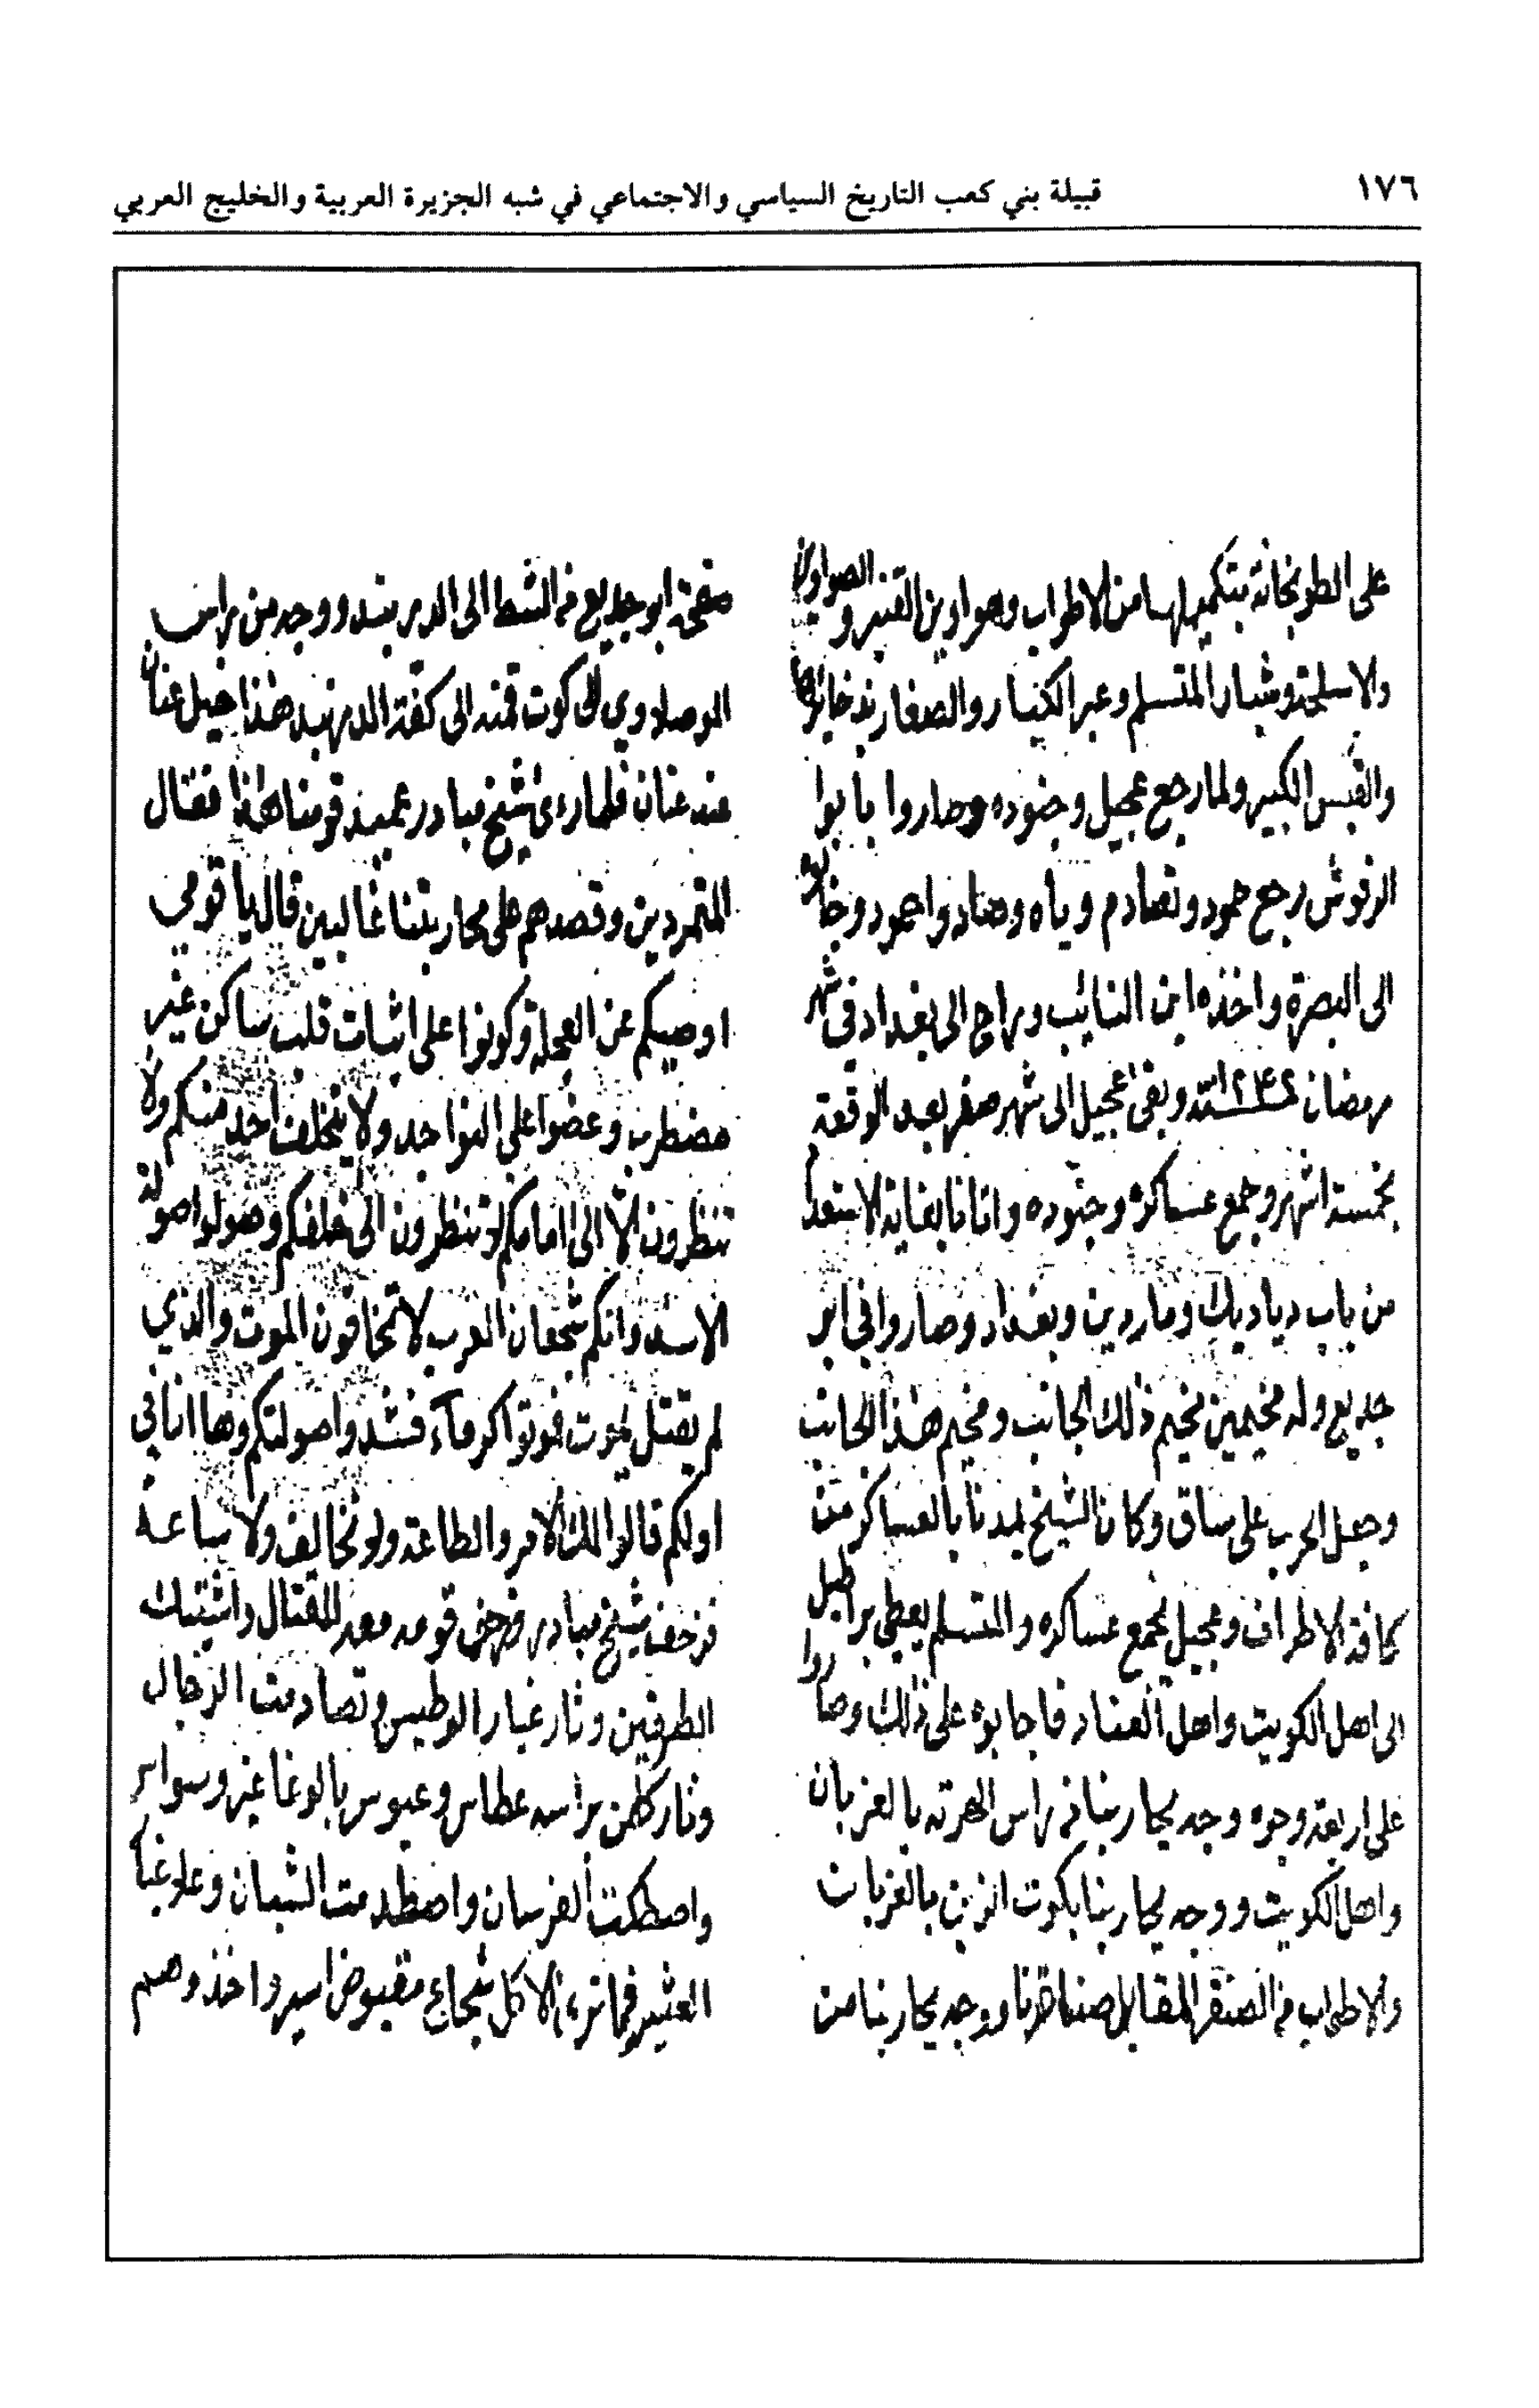 ١٧٦
قبيلة بني كعب التاريخ السياسي والاجتماعي في شبه الجزيرة العربية والخليج العربي
على الطوبخانة بتكميلها من الاطواب وهواوين القنبر و الصواوين
والاسلحة وشبار المتسلم وعبر الكبار والصغار بذخائرها
والقبس الكبير ولما رجع عجيل وجنوده وصاروا بابوا
الرفوش رجع حمود وتصادم وياه وصادوا حمود وخلوه
الى البصرة واخذه ابن النائب وراح الى بغداد في شهر
رمضان ١٢٤٢ سنة وبقى عجيل الى شهر صفر بعد الوقعة
بخمسة اشهر وجمع عساكره وجنوده واتانا بغاية الاستعداد
من باب دياربك وماردين وبغداد وصاروا في ابو
جديع وله مخيمين مخيم ذلك الجانب ومخيم هذا الجانب
وجعل الحرب على ساق وكان الشيخ يمدنا بالعساكر من
كافة الاطراف وعجيل يجمع عساكره والمتسلم يعطي براطيل
الى اهل الكويت واهل العناد فاجابوه على ذلك وصاروا
على اربعة وجوه وجه يحاربنا من راس الهرته بالغربان
واهل الكويت ووجه يحاربنا بكوت الزين بالغربان
والاطواب من الصنقر المقابل صناقرنا ووجه يحاربنا من
صفحة ابو جديع من الشط الى الدربند ووجه من راس
الموصلاوي الى كوت قمنه الى كفة الدربند هذا خيل عنان
عند عنان فلما رءى شيخ مبادر عميد قومنا هذا فقال
المتمردين وقصدهم على محاربتنا غالبين قال يا قومي
اوصيكم عن العجلة وكونوا على اثبات قلب ساكن غير
مضطرب وعضوا على النواجد ولا يتخلف احد منكم ولا
تنظرون الا الى امامكم لا تنظرون الى خلفكم وصولوا صولة
الاسد وانكم شجعان العرب لا تخافون الموت والذي
لم يقتل يموت فموتوا كرماء فشدوا صولتكم وها انا في
اولكم قالوا لك الامر والطاعة ولو نخالف ولا ساعة
فزحف شيخ مبادر قومه معه للقتال واشتبك
الطرفين وثار غبار الوطيس وتصادمت الرجال
وثار كلمن براسه عطاس وعبوس بالوغا غير وسواس
واصطكت الفرسان واصطدمت الشبان وعلا غبار
العثير فما ترى الا كل شجاع مقبوض اسير واخذوهم